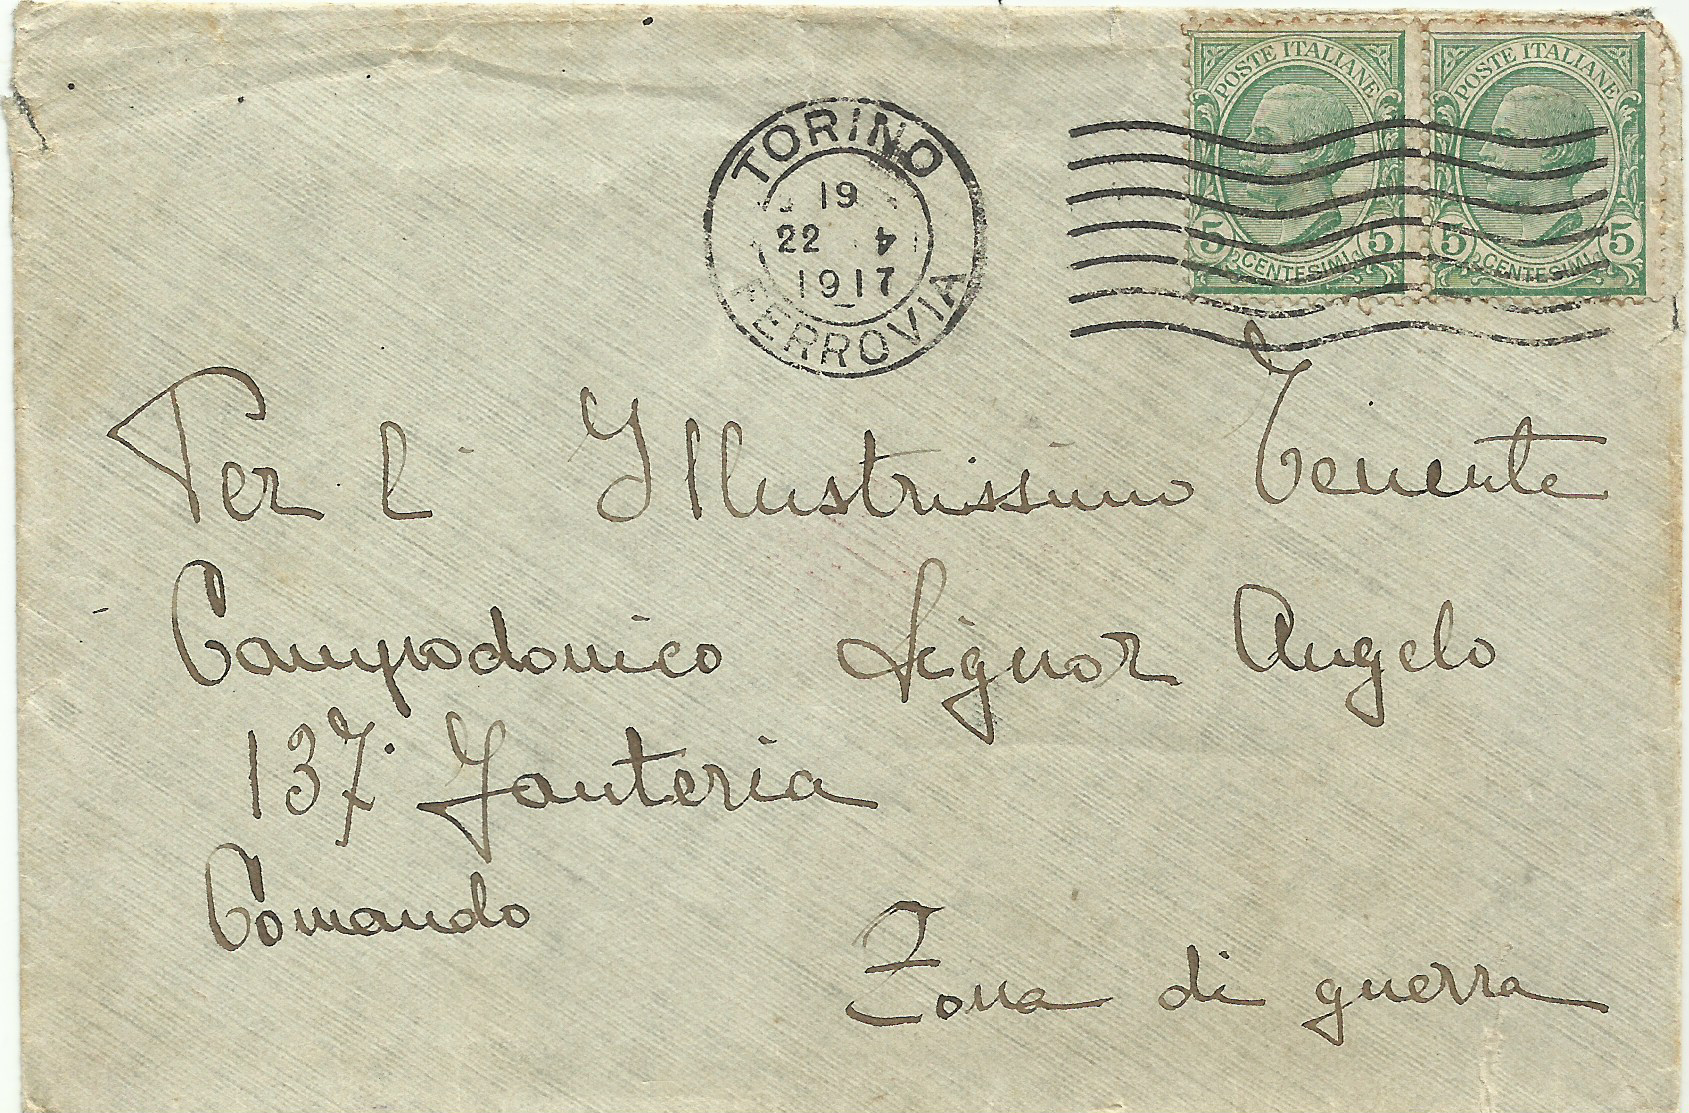 POSTE ITALIANE
POSTE ITALIANE
5 CENTESIMI 5
5 CENTESIMI 5
TORINO
19
22 4
1917
FERROVIA
Per l' Illustrissimo Tenente
Campodonico Signor Angelo
137. Fanteria
Comando
Zona di guerra